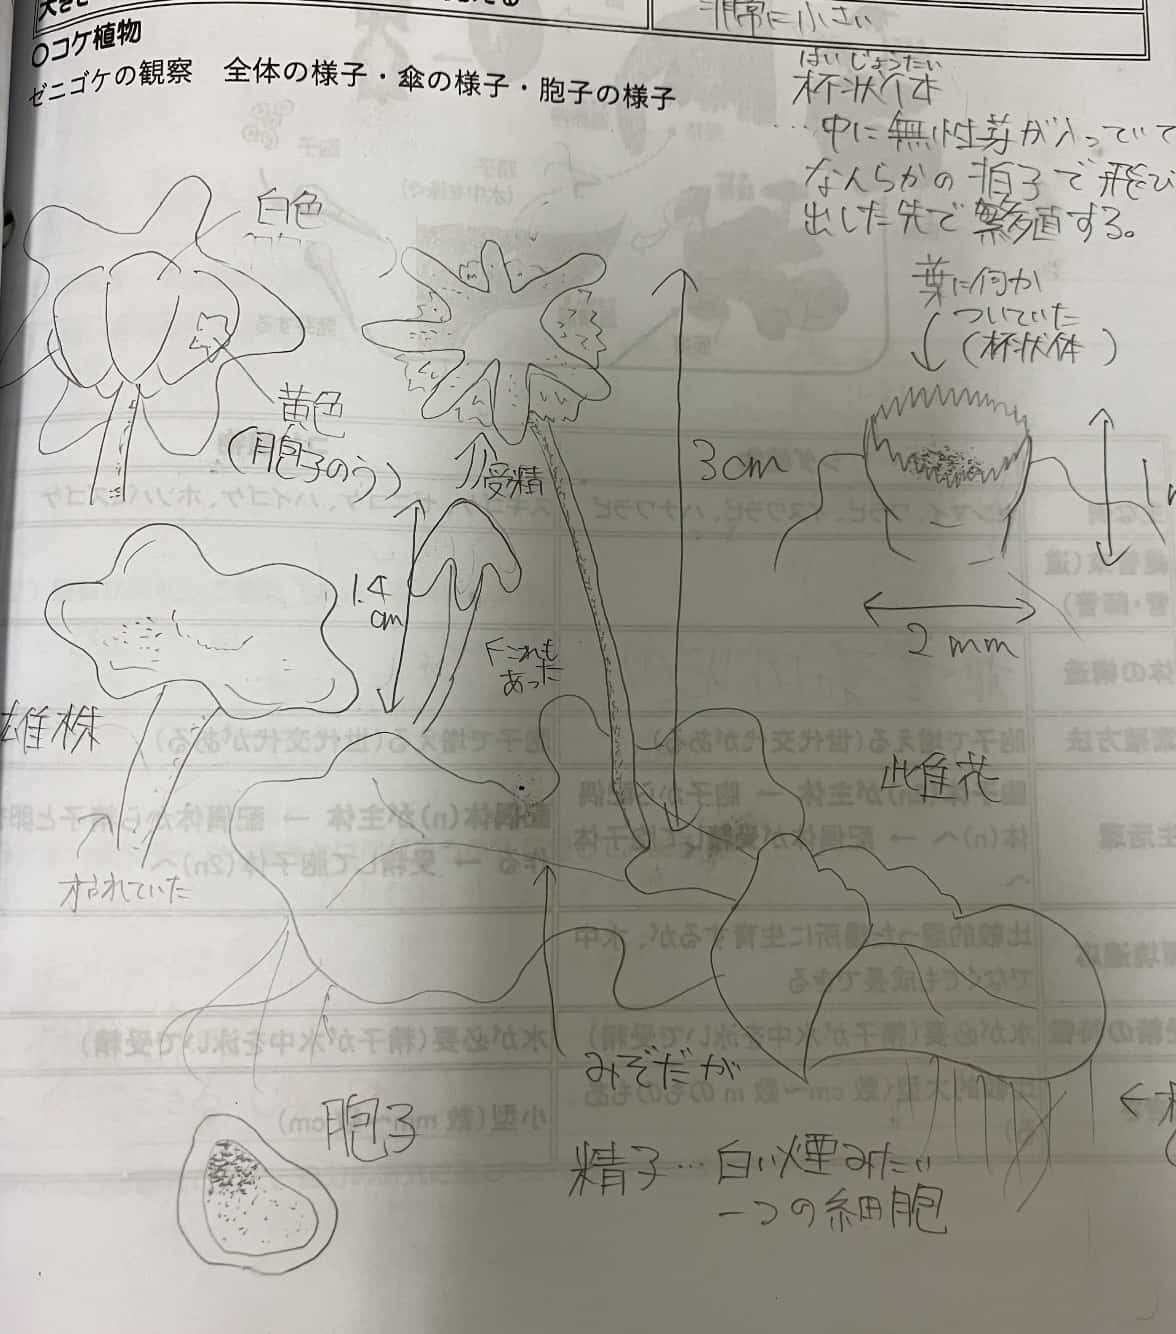 非常に小さい
〇コケ植物
ゼニゴケの観察　全体の様子・傘の様子・胞子の様子
はいじょうたい
杯状体
…中に無性芽が入っていて
なんらかの拍子で飛び
出した先で繁殖する。
白色
葉に何か
ついていた
(杯状体)
黄色
(胞子のう)
受精
3cm
1.4
cm
2mm
これも
あった
雄株
雌花
枯れていた
みぞだが
胞子
精子…白い煙みたい
一つの細胞